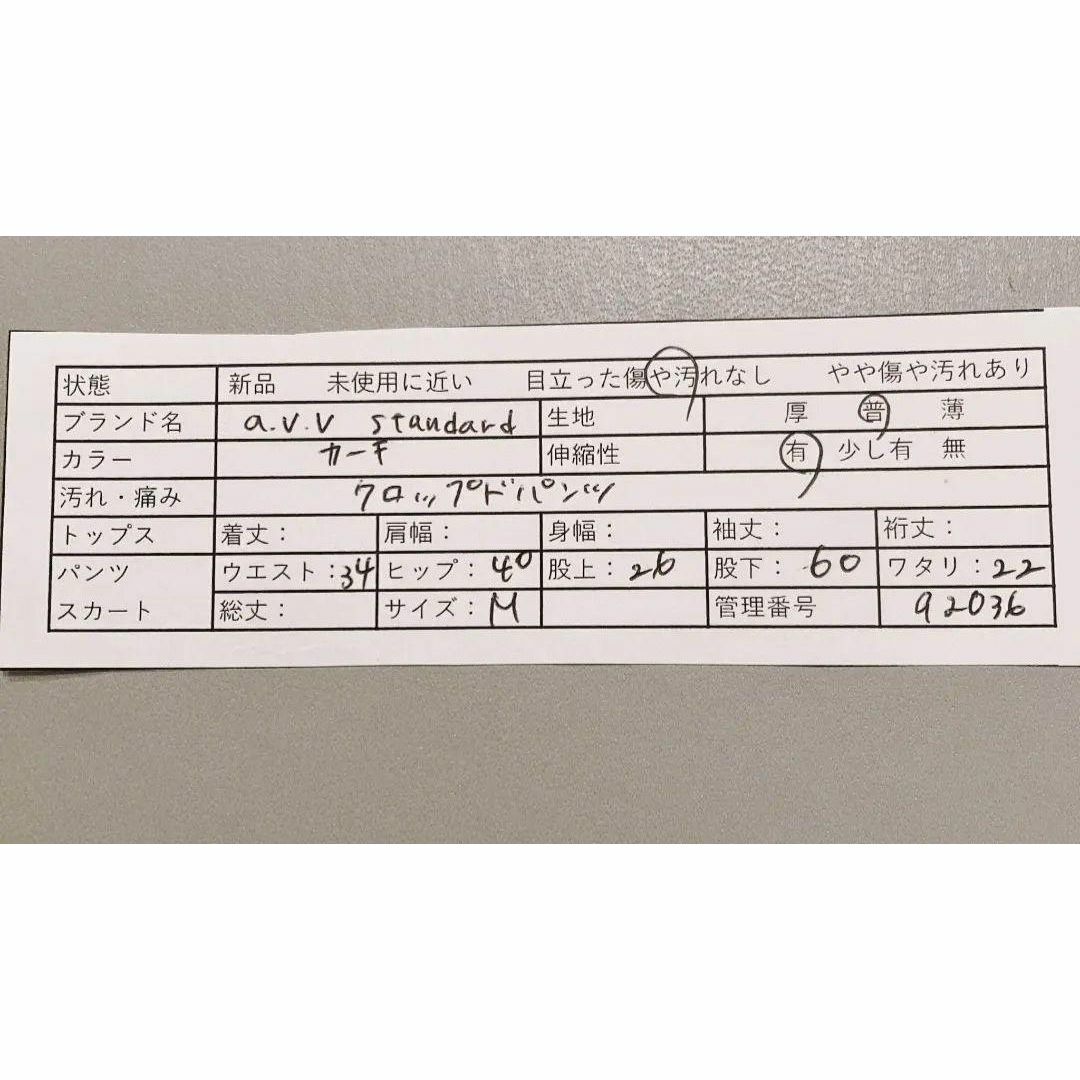 状態 新品 未使用に近い 目立った傷や汚れなし やや傷や汚れあり
ブランド名 a.v.v standard 生地 厚 普 薄
カラー カーキ 伸縮性 有 少し有 無
汚れ・痛み クロップドパンツ
トップス 着丈： 肩幅： 身幅： 袖丈： 裄丈：
パンツ ウエスト：34 ヒップ：40 股上：26 股下：60 ワタリ：22
スカート 総丈： サイズ：M 管理番号 92036